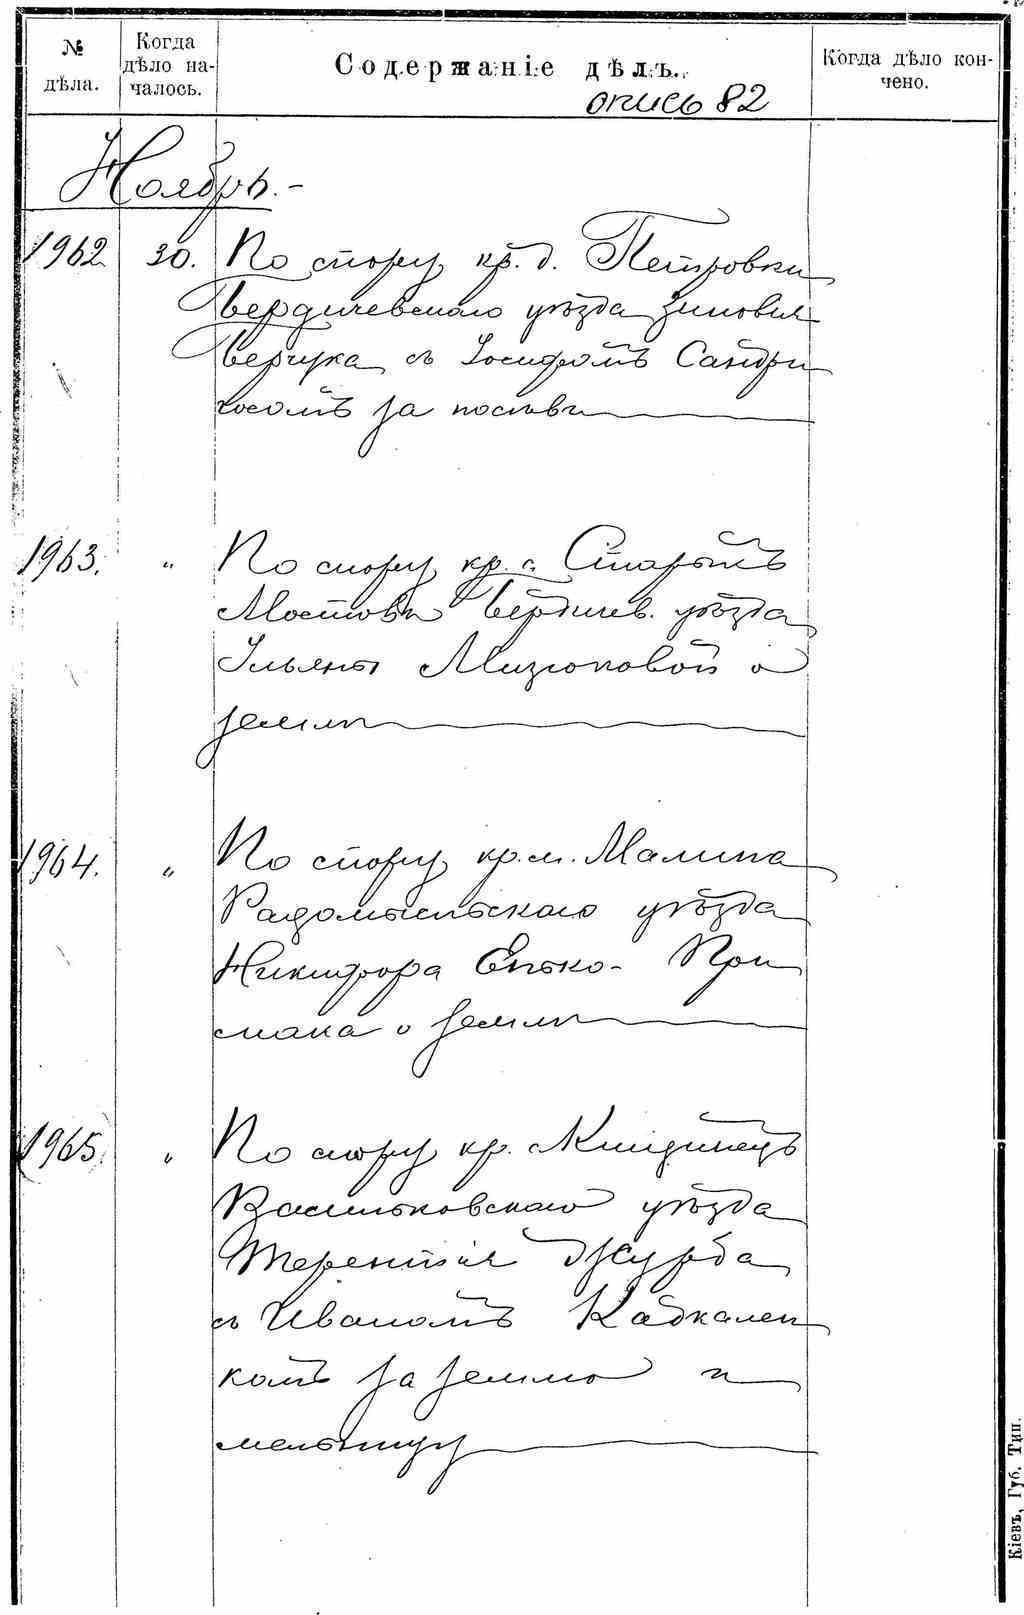 № дѣла.
Когда дѣло на-
чалось.
Содержаніе дѣлъ.
Когда дѣло кон-
чено.
опись 82
Ноябрь.-
1962 30. По спору кр. д. Петровки
Бердичевскаго уѣзда Зиновия
Верчука съ Іосифомъ Сандри
чосомъ за посѣвы
1963. " По спору кр. с. Старыхъ
Мостовъ Бердичев. уѣзда
Ульяны Мизюковой о
землѣ
1964. " По спору кр. м. Малина
Радомысльскаго уѣзда
Никифора Енько- При
мака о землѣ
1965. " По спору кр.
Васильковскаго уѣзда
Терентія Журба
съ Иваномъ Кабкален
комъ за землю и
мельницу
Кіевъ, Губ. Тип.